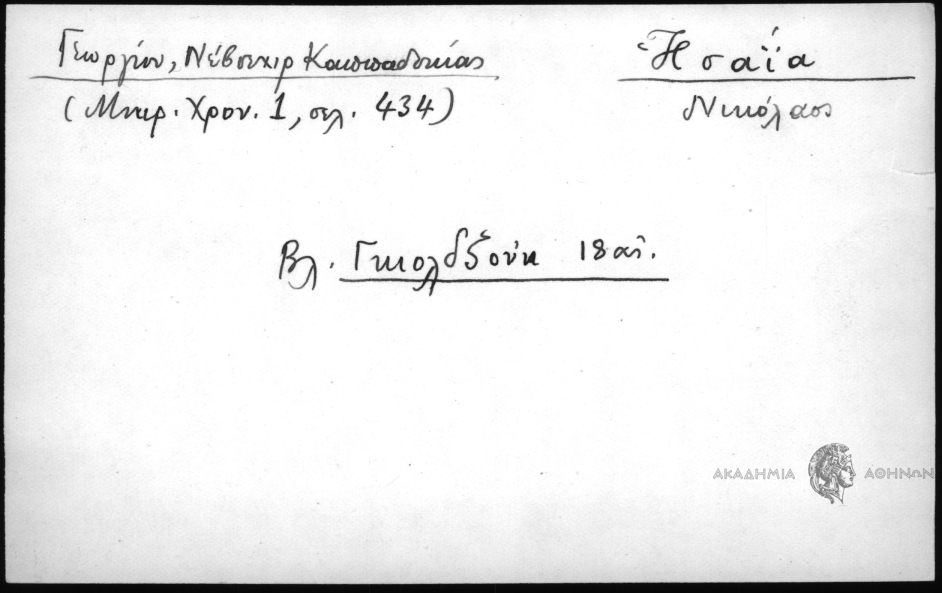 Γεωργίου, Νέβσεχιρ Καππαδοκίας
(Μικρ. Χρον. 1, σελ. 434)
Ἡσαΐα
Νικόλαος
Βλ. Γκιολδζούκ 18 αἰ.
ΑΚΑΔΗΜΙΑ ΑΘΗΝΩΝ